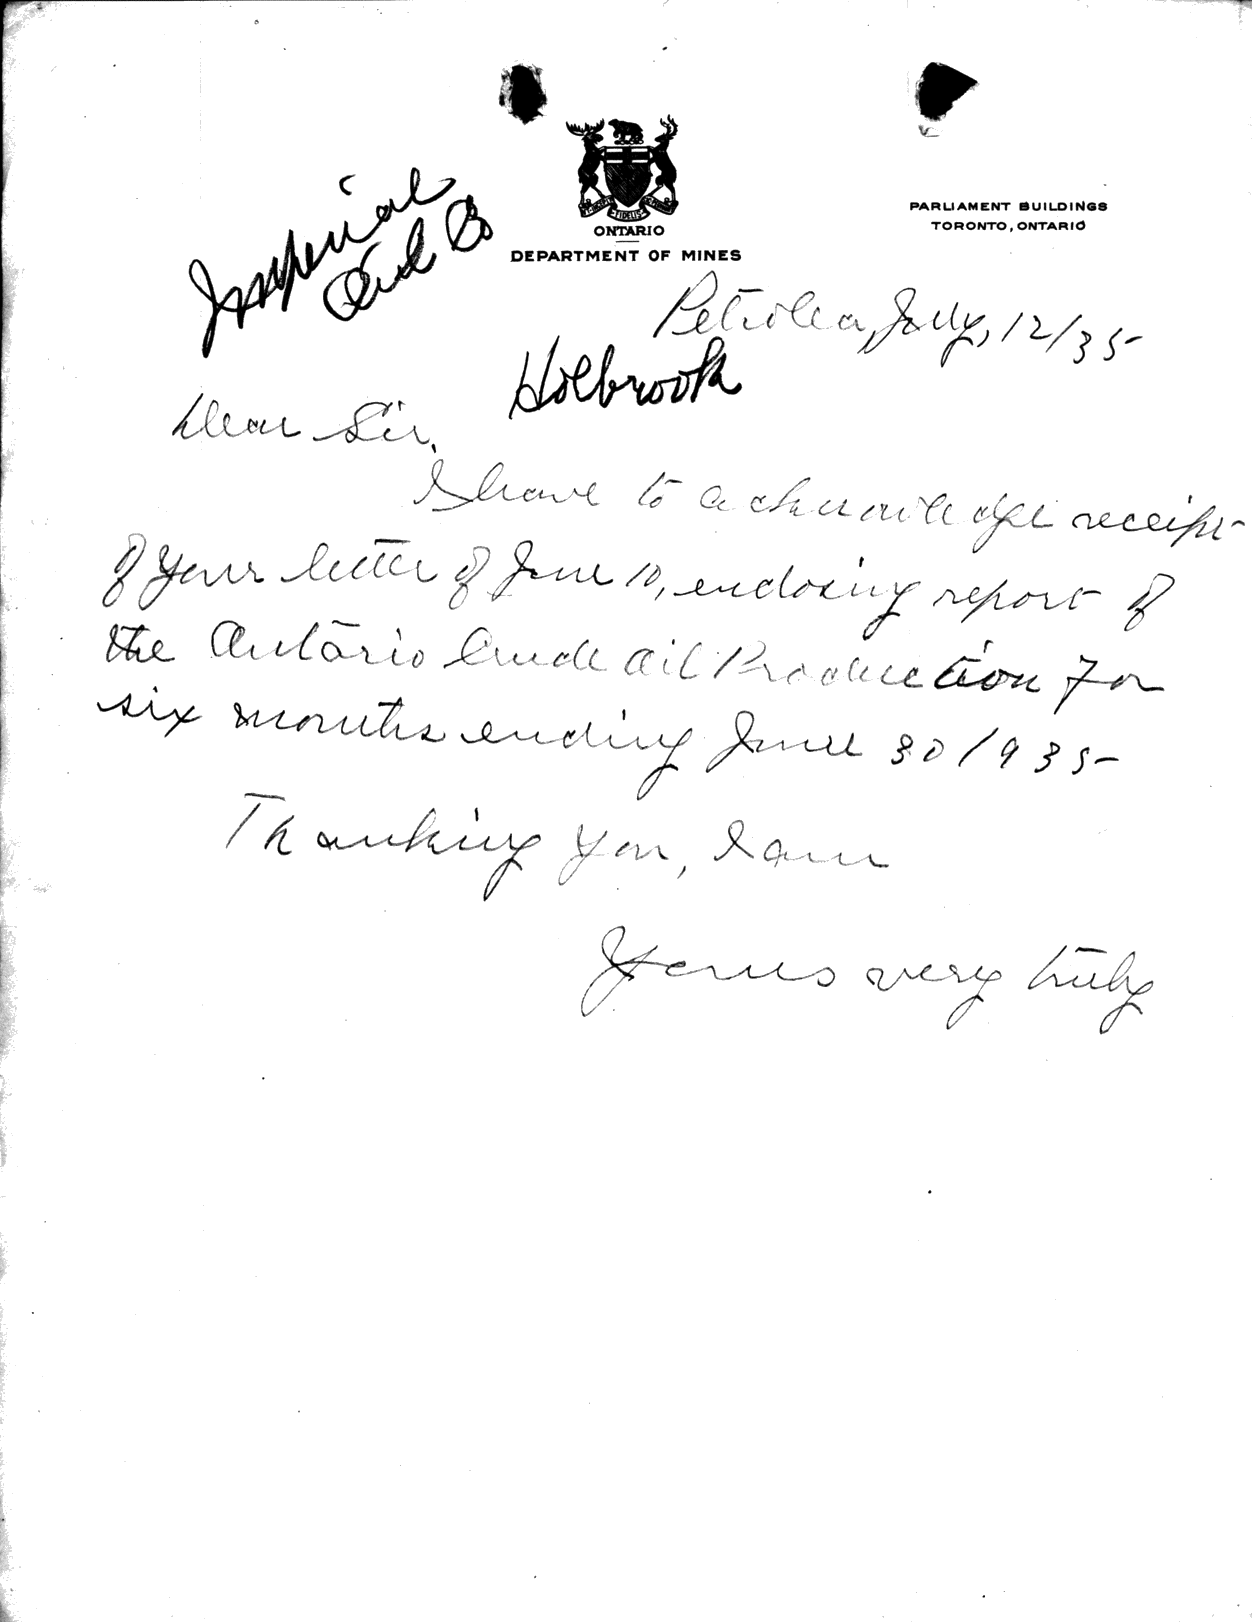 ONTARIO
DEPARTMENT OF MINES
PARLIAMENT BUILDINGS
TORONTO, ONTARIO
Imperial
Oil Co
Petrolea, July, 12/35
Holbrook
Dear Sir,
I have to acknowledge receipt
of your letter of June 10, enclosing report of
the Ontario Crude Oil Production for
six months ending June 30/935
Thanking you, I am
Yours very truly